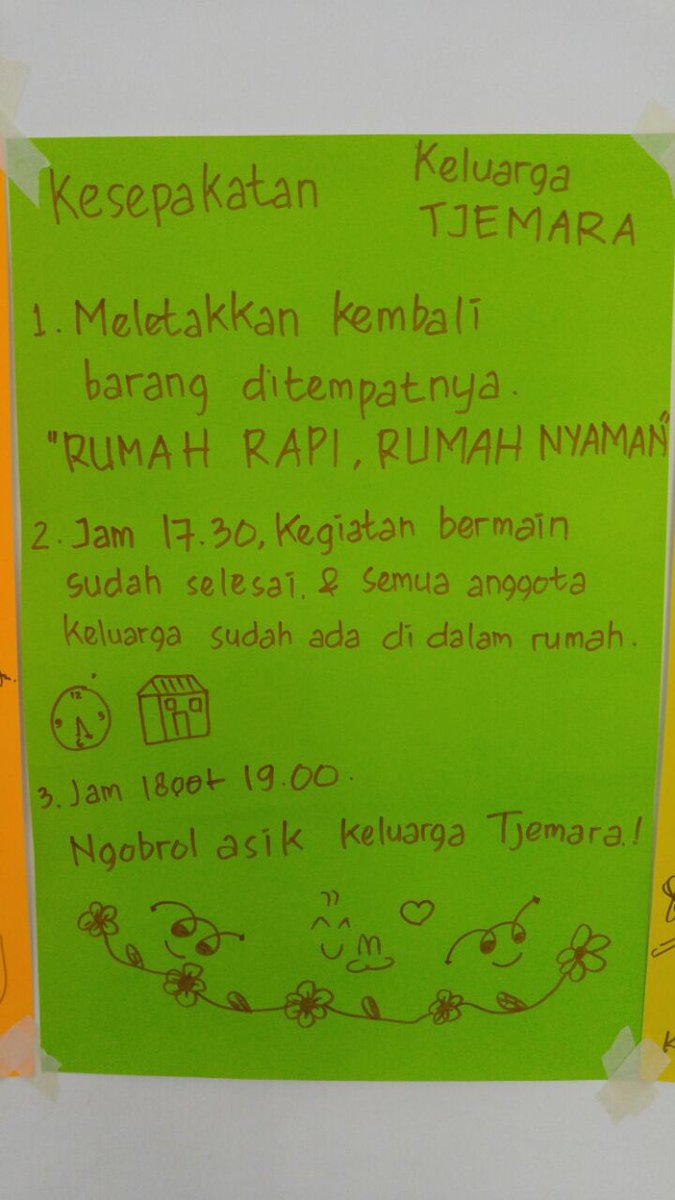 Kesepakatan
Keluarga
TJEMARA
1. Meletakkan kembali
barang ditempatnya.
"RUMAH RAPI, RUMAH NYAMAN"
2. Jam 17.30, Kegiatan bermain
sudah selesai. & semua anggota
keluarga sudah ada di dalam rumah.
12
9
3
6
3. Jam 19.00.
Ngobrol asik keluarga Tjemara.!